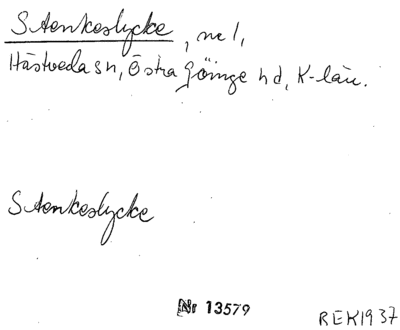 Stenkeslycke, nr 1,
Hästveda sn, Östra Göinge hd, K-län.
Stenkeslycke
Nr 13579
REK1937